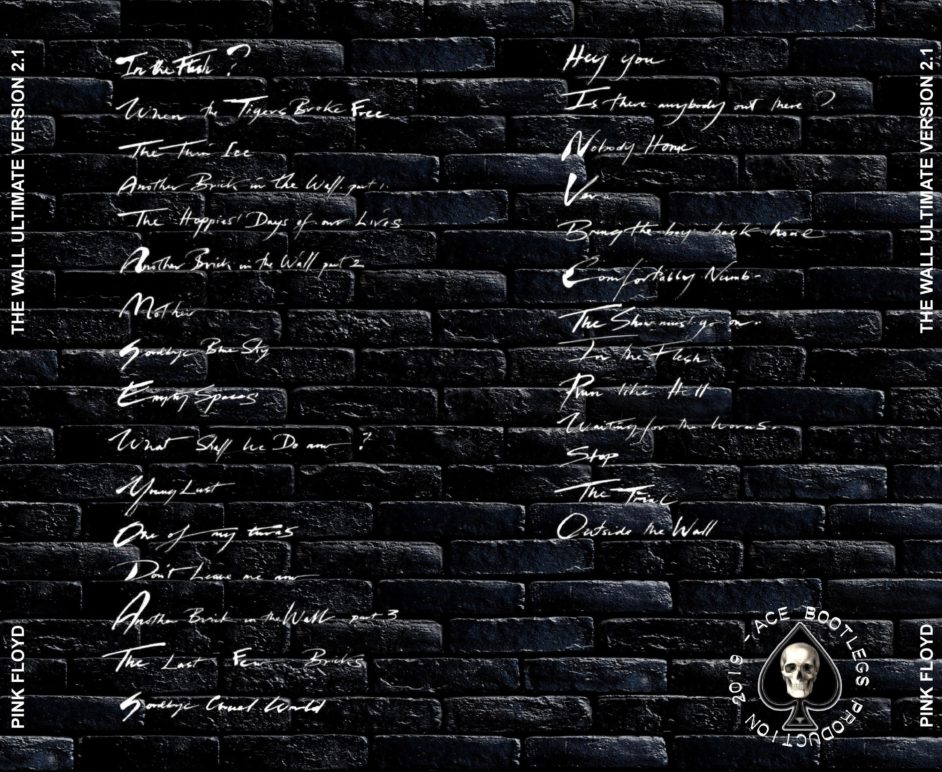 THE WALL ULTIMATE VERSION 2.1
PINK FLOYD
In the Flesh ?
When the Tigers Broke Free
The Thin Ice
Another Brick in the Wall part 1.
The Happiest Days of our Lives
Another Brick in the Wall part 2
Mother
Goodbye Blue Sky
Empty Spaces
What Shall We Do now ?
Young Lust
One of my turns
Don't Leave me now
Another Brick in the Wall part 3
The Last Few Bricks
Goodbye Cruel World
Hey you
Is there anybody out there ?
Nobody Home
Vera
Bring the boys back home
Comfortably Numb-
The Show must go on.
In the Flesh
Run like Hell
Waiting for the Worms.
Stop
The Trial
Outside the Wall
-ACE BOOTLEGS PRODUCTION 2019
THE WALL ULTIMATE VERSION 2.1
PINK FLOYD